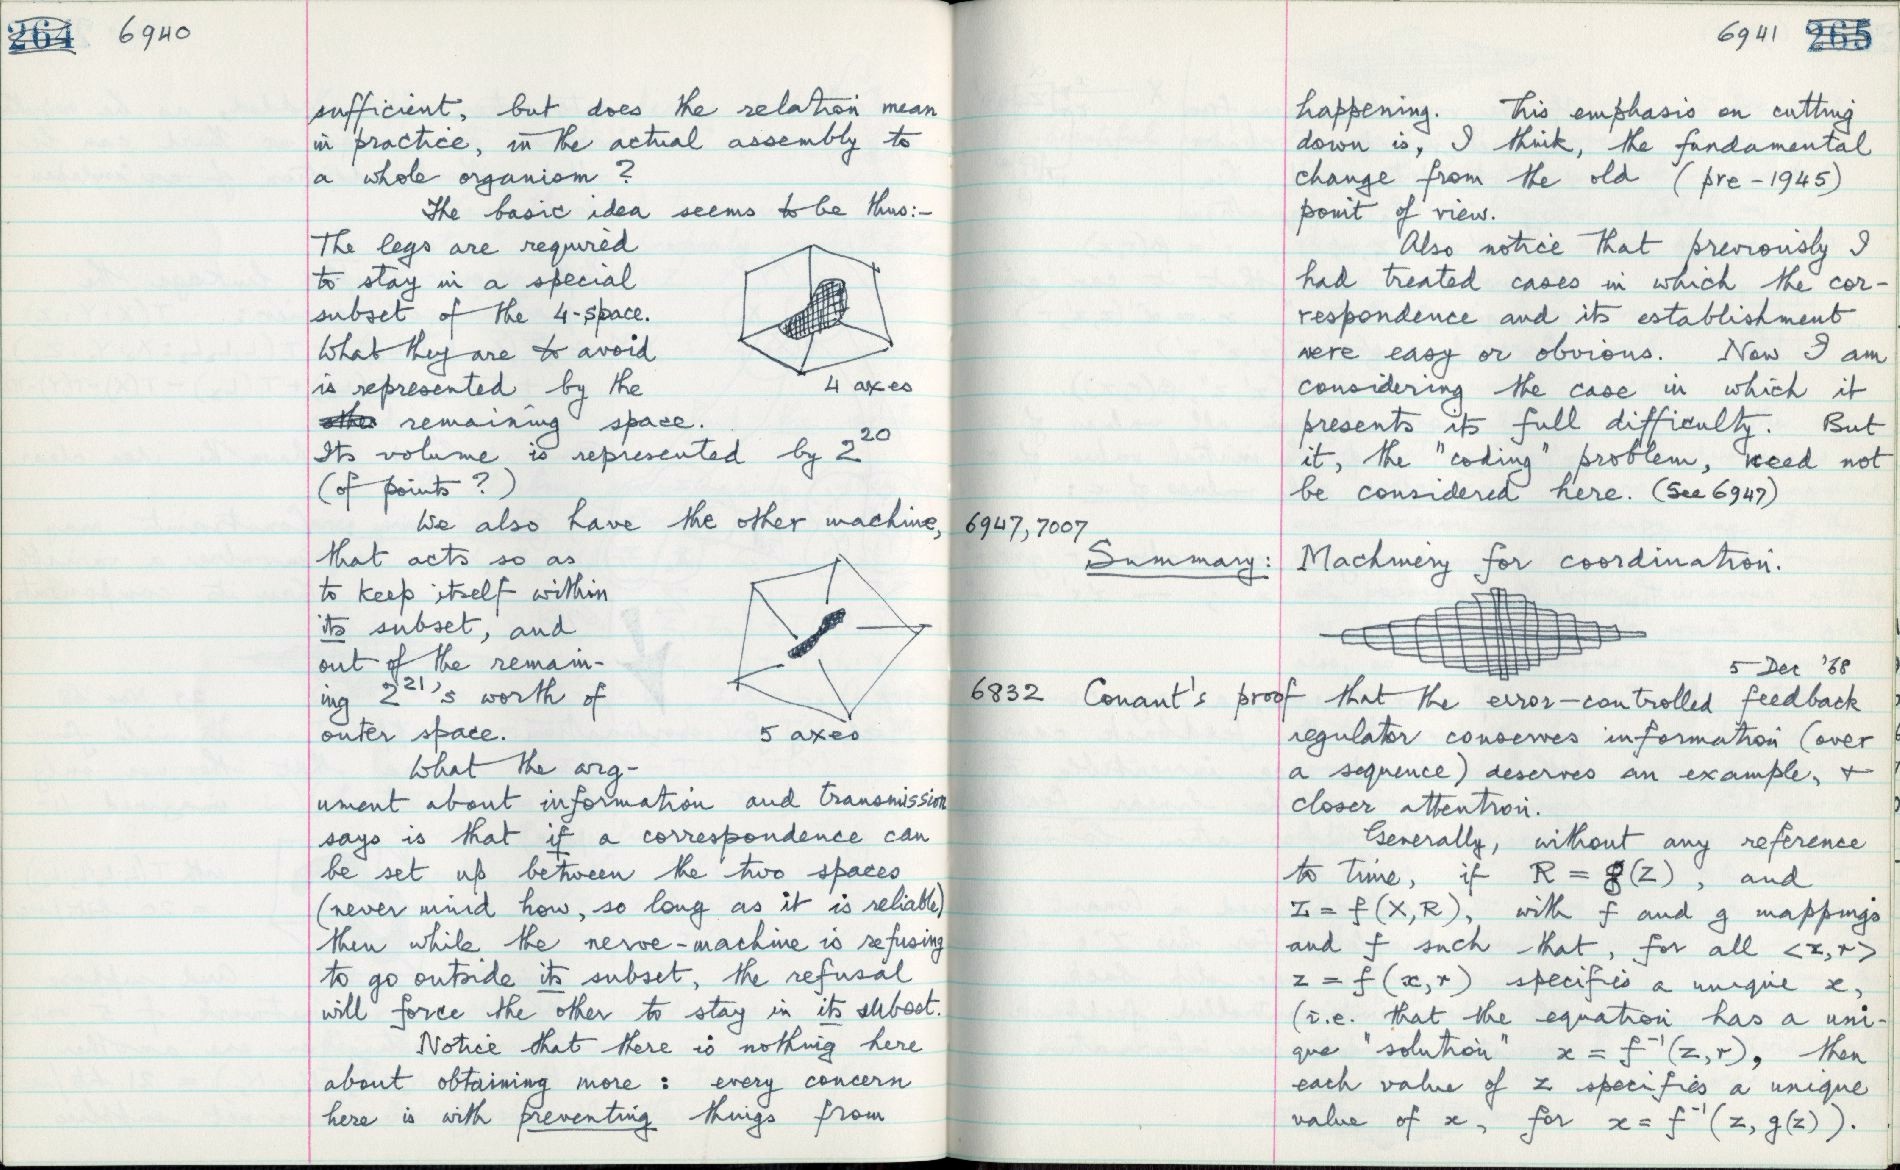 264 6940
sufficient, but does the relation mean
in practice, in the actual assembly to
a whole organism ?
The basic idea seems to be thus:-
The legs are required
to stay in a special
subset of the 4-space.
What they are to avoid
is represented by the
remaining space.
4 axes
Its volume is represented by 2^20
(of points ?)
We also have the other machine,
that acts so as
to keep itself within
its subset, and
out of the remain-
ing 2^21's worth of
outer space.
5 axes
What the arg-
ument about information and transmission
says is that if a correspondence can
be set up between the two spaces
(never mind how, so long as it is reliable)
then while the nerve-machine is refusing
to go outside its subset, the refusal
will force the other to stay in its subset.
Notice that there is nothing here
about obtaining more : every concern
here is with preventing things from
6941 265
happening. This emphasis on cutting
down is, I think, the fundamental
change from the old (pre-1945)
point of view.
Also notice that previously I
had treated cases in which the cor-
respondence and its establishment
were easy or obvious. Now I am
considering the case in which it
presents its full difficulty. But
it, the "coding" problem, need not
be considered here. (See 6947)
6947, 7007
Summary: Machinery for coordination.
5 Dec '68
6832 Conant's proof that the error-controlled feedback
regulator conserves information (over
a sequence) deserves an example, +
closer attention.
Generally, without any reference
to time, if R = g(Z), and
Z = f(X,R), with f and g mappings
and f such that, for all <x,r>
z = f(x,r) specifies a unique x,
(i.e. that the equation has a uni-
que "solution" x = f⁻¹(z,r), then
each value of z specifies a unique
value of x, for x = f⁻¹(z, g(z)).